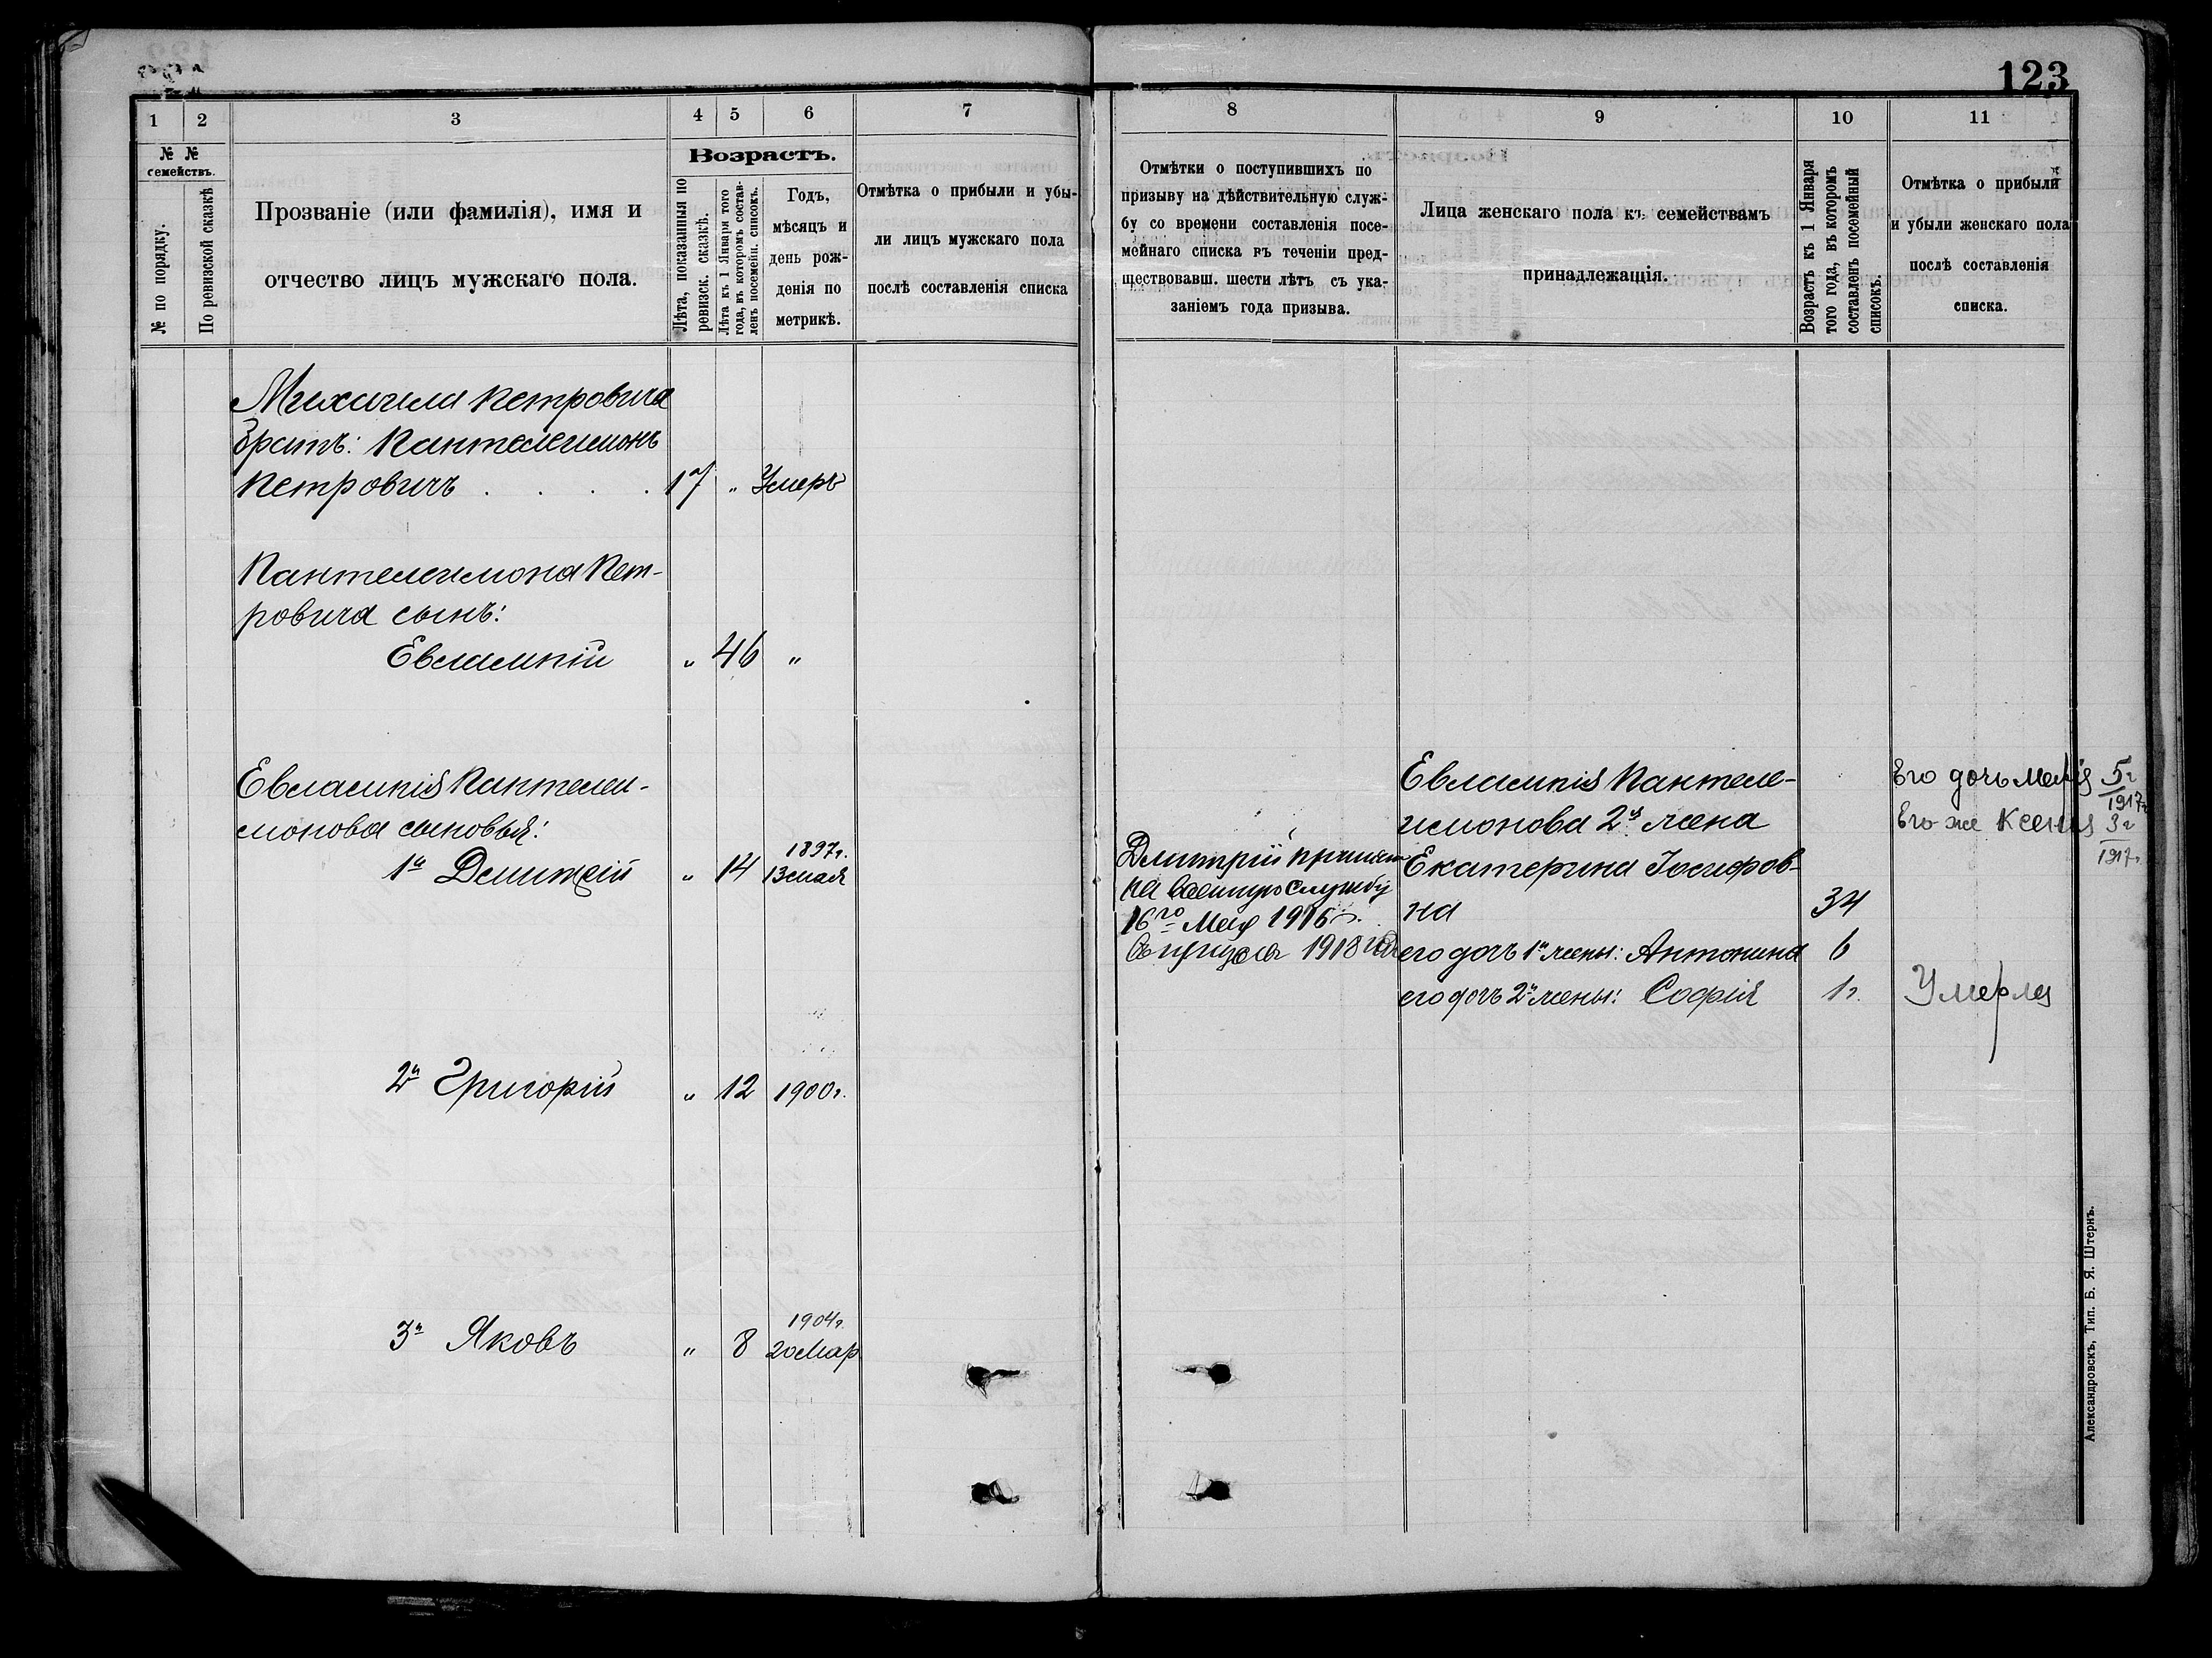 123
1
2
3
4
5
6
7
№ №
семействъ.
№ по порядку.
По ревизской сказкѣ
Прозваніе (или фамилія), имя и
отчество лицъ мужскаго пола.
Возрастъ.
Лѣта, показанныя по
ревизск. сказкѣ.
Лѣта къ 1 Января того
года, въ которомъ состав-
ленъ посемейн. списокъ.
Годъ,
мѣсяцъ и
день рож-
денія по
метрикѣ.
Отмѣтка о прибыли и убы-
ли лицъ мужскаго пола
послѣ составленія списка
Михаила Петровича
братъ: Пантелеимонъ
Петровичъ . . . . 17 " Умеръ
Пантелеимона Пет-
ровича сынъ:
Евлампій " 46 "
Евлампія Пантелеи-
монова сыновья:
1й Дмитрій " 14 1897г. 13 мая
2й Григорій " 12 1900г.
3й Яковъ " 8 1904г. 20 Мар
8
9
10
11
Отмѣтки о поступившихъ по
призыву на дѣйствительную служ-
бу со времени составленія посе-
мейнаго списка въ теченіи пред-
шествовавш. шести лѣтъ съ ука-
заніемъ года призыва.
Лица женскаго пола къ семействамъ
принадлежащія.
Возрастъ къ 1 Января
того года, въ которомъ
составленъ посемейный
списокъ.
Отмѣтка о прибыли
и убыли женскаго пола
послѣ составленія
списка.
Дмитрій принят
на военную службу
16го Мая 1916 г.
1918
Евлампія Пантеле-
имонова 2я жена
Екатерина Іосифов-
на 34
его дочь 1й жены: Антонина 6
его дочь 2й жены: Софія 1г. Умерла
Его дочь Марія 5г 1917г
Его же Ксенія 3г 1917г.
Александровскъ, Тип. Б. Я. Штернъ.